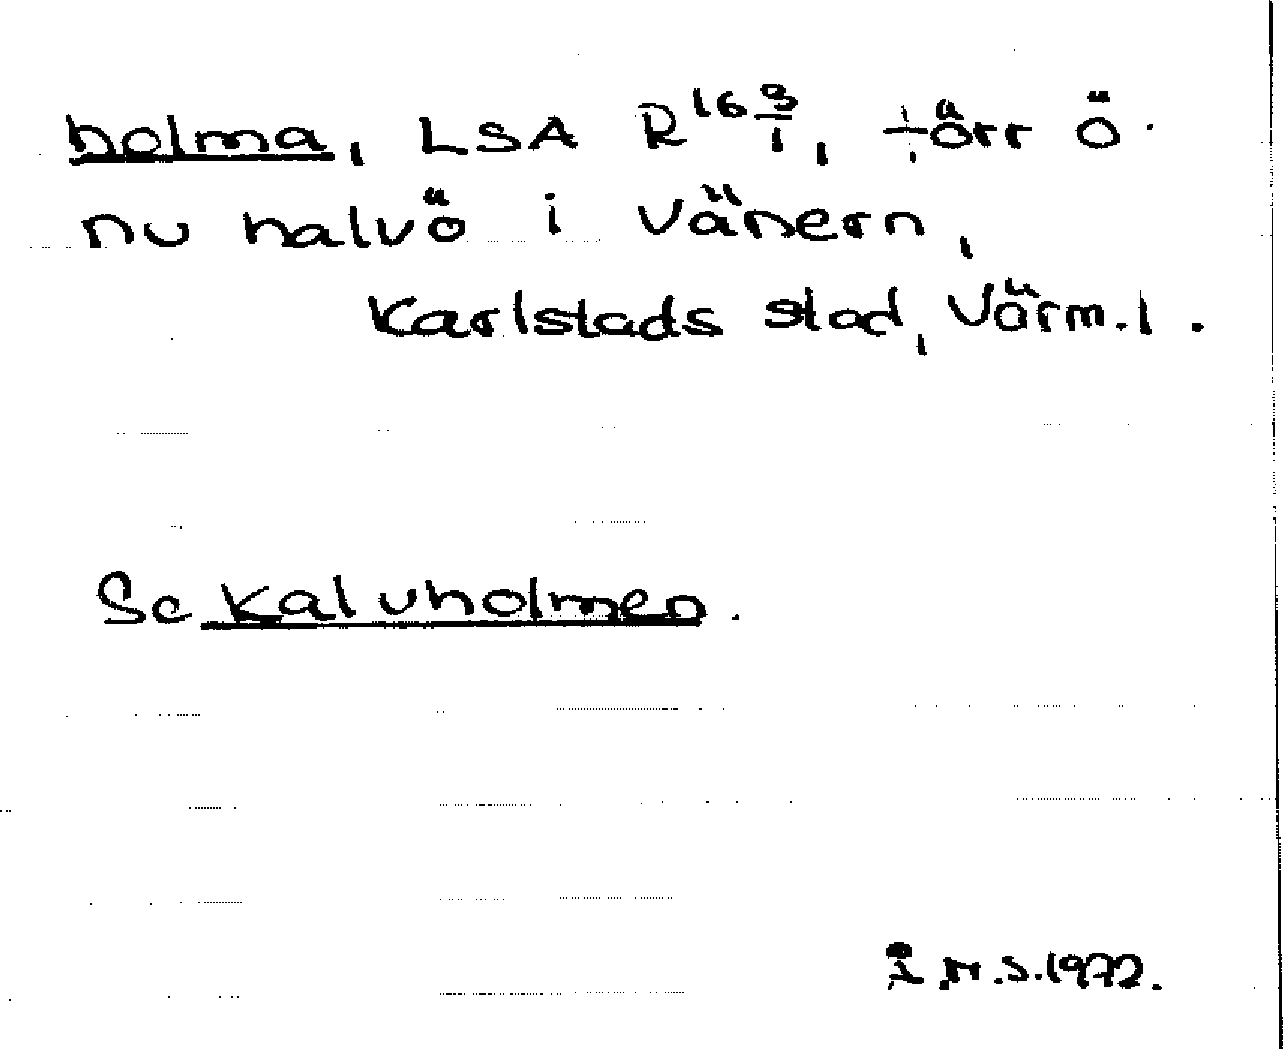 holma, LSA R 16 9/1, förr ö
nu halvö i Vänern,
Karlstads stad, Värml.
Se Kalvholmen.
I.M.S. 1972.